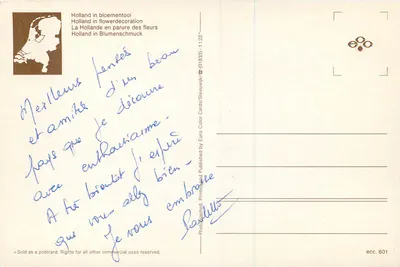 Holland in bloementooi
Holland in flowerdecoration
La Hollande en parure des fleurs
Holland in Blumenschmuck
Meilleurs pensées
et amitiés d'un beau
pays que je découvre
avec enthousiasme.
A très bientôt j'espère
que vous allez bien-
Je vous embrasse
Paulette
Published by Euro Color Cards/Sleeuwijk ☎ (01833) - 11 22
• Sold as a postcard. Rights for all other commercial uses reserved.
ecc. 601